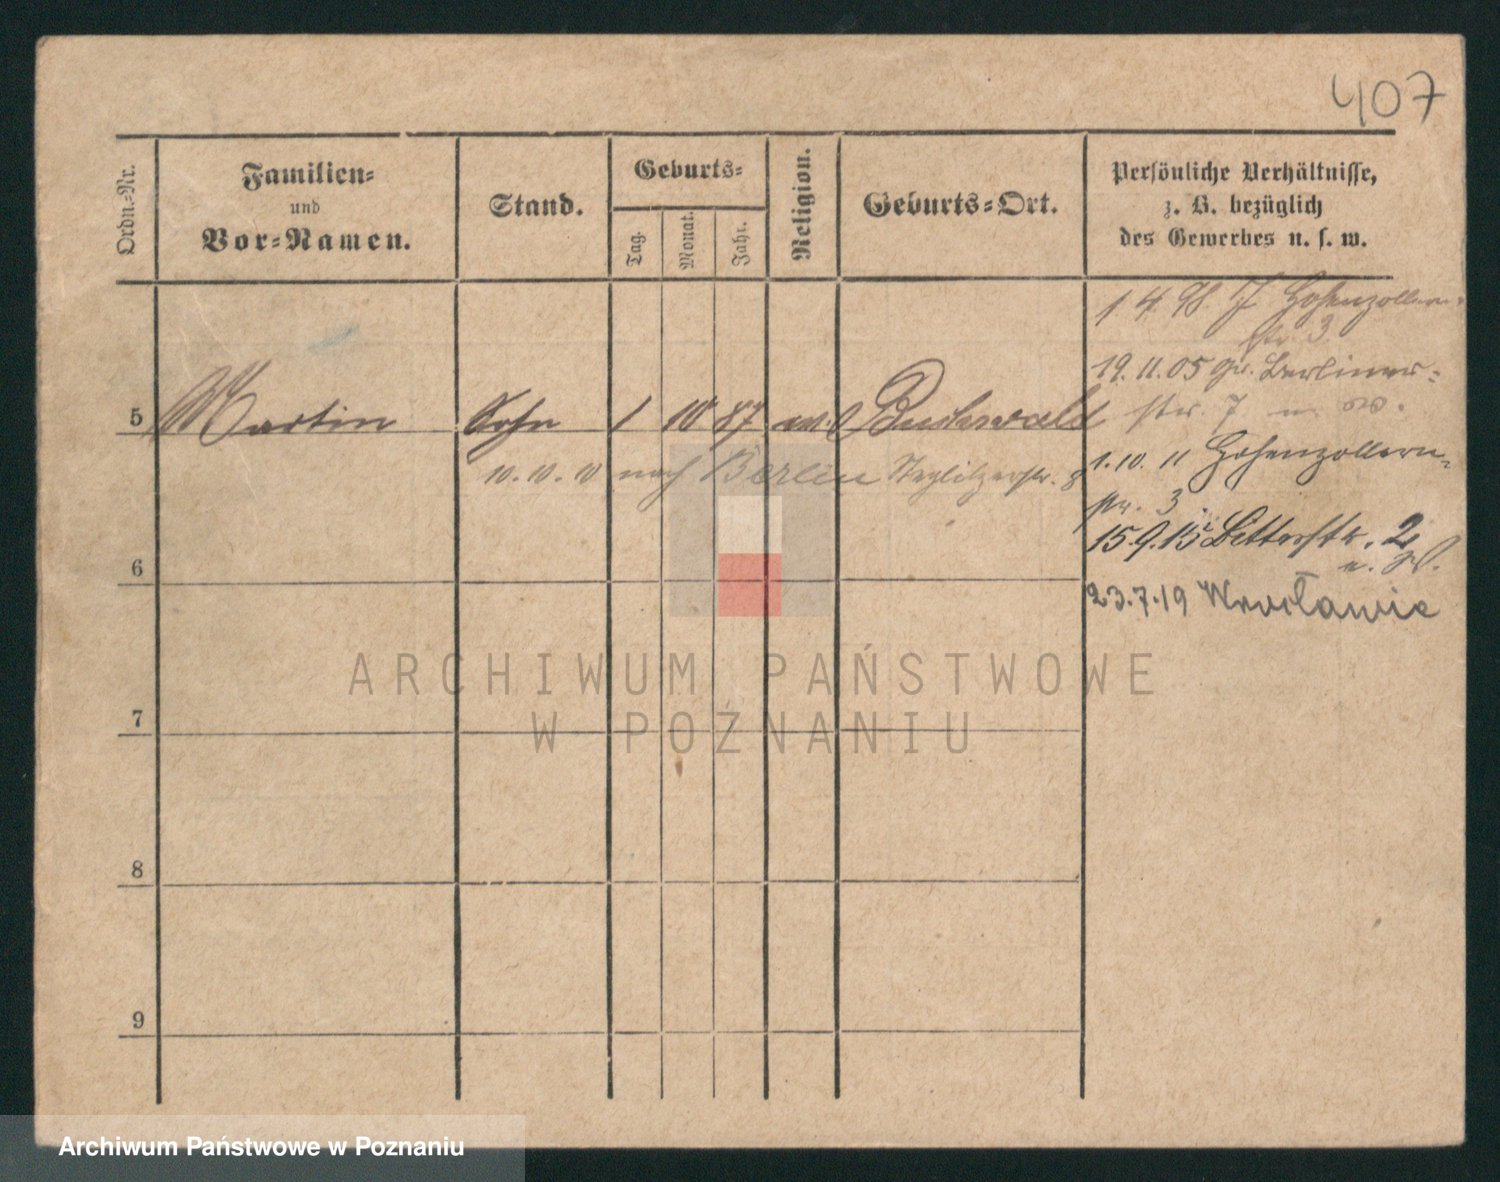 407
Ordn.-Nr.
Familien-
und
Vor-Namen.
Stand.
Geburts-
Tag.
Monat.
Jahr.
Religion.
Geburts-Ort.
Persönliche Verhältnisse,
z. B. bezüglich
des Gewerbes u. s. w.
1 4 98. J Hohenzollern-
str 3.
19. 11. 05 gr. Berliner-
str. 7
5 Martin Sohn 1 10 87 Buchwald
10. 10. 10 nach Berlin Steglitzerstr. 8
1. 10. 11 Hohenzollern-
str. 3
15. 9. 15 Ritterstr. 2
6
23.7.19 Wrocławie
ARCHIWUM PAŃSTWOWE
W POZNANIU
7
8
9
Archiwum Państwowe w Poznaniu